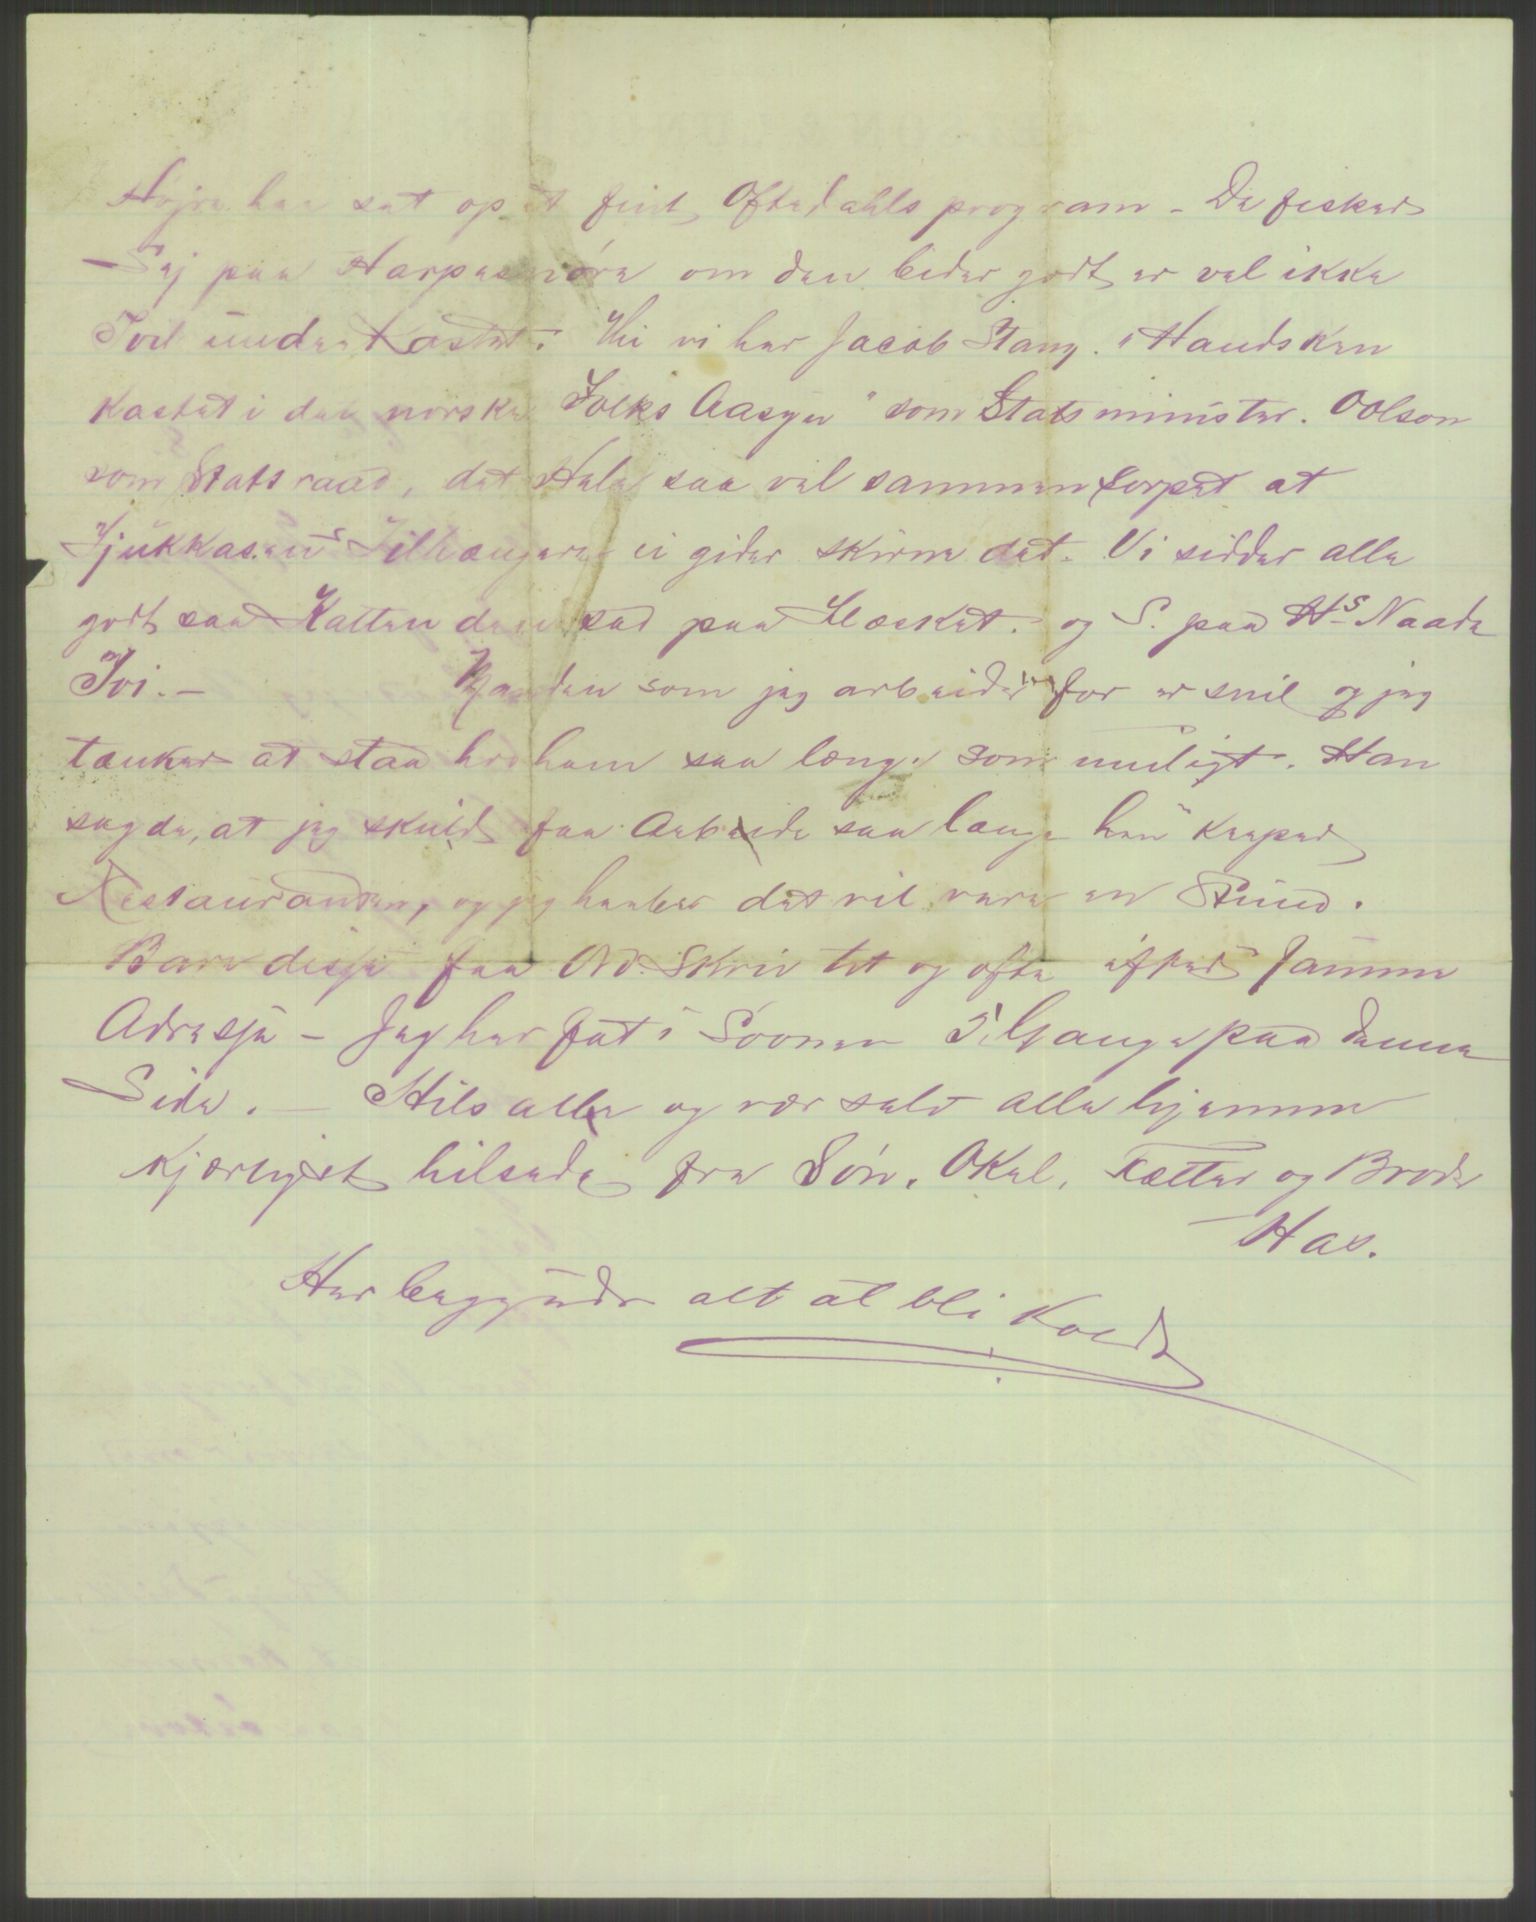 Højre har sat op et fint Oftedahls program - De fisker
Sej paa Harpesnøra om den bider godt er vel ikke
Tvil underkastet. Thi vi har Jacob Stang. "Handsken
kastet i det norske Folks Aasyn" som Statsminister. O Olson
som Statsraad, det Hele saa vel sammensorpet at
Tilhængere ei gider skirne det. Vi sidder alle
godt saa Katten den sad paa Flæsket. og S. paa Hs Naade
Tvi. - Manden som jeg arbeider for er snil og jeg
tænker at staa hos ham saa længe som muligt. Han
sagde, at jeg skuld faa Arbeide saa længe han keeper
Restauranten, og jeg haaber det vil vare en Stund.
Bare disse faa Ord. Skriv tit og ofte efter samme
Adresse - Jeg har fat i Søvnen 3 Gange paa denne
Side. - Hils alle og vær selv alle hjemme
Kjærligst hilsede fra Søn. Okel, Fætter og Broder
Has.
Her begynder alt at bli Koldt